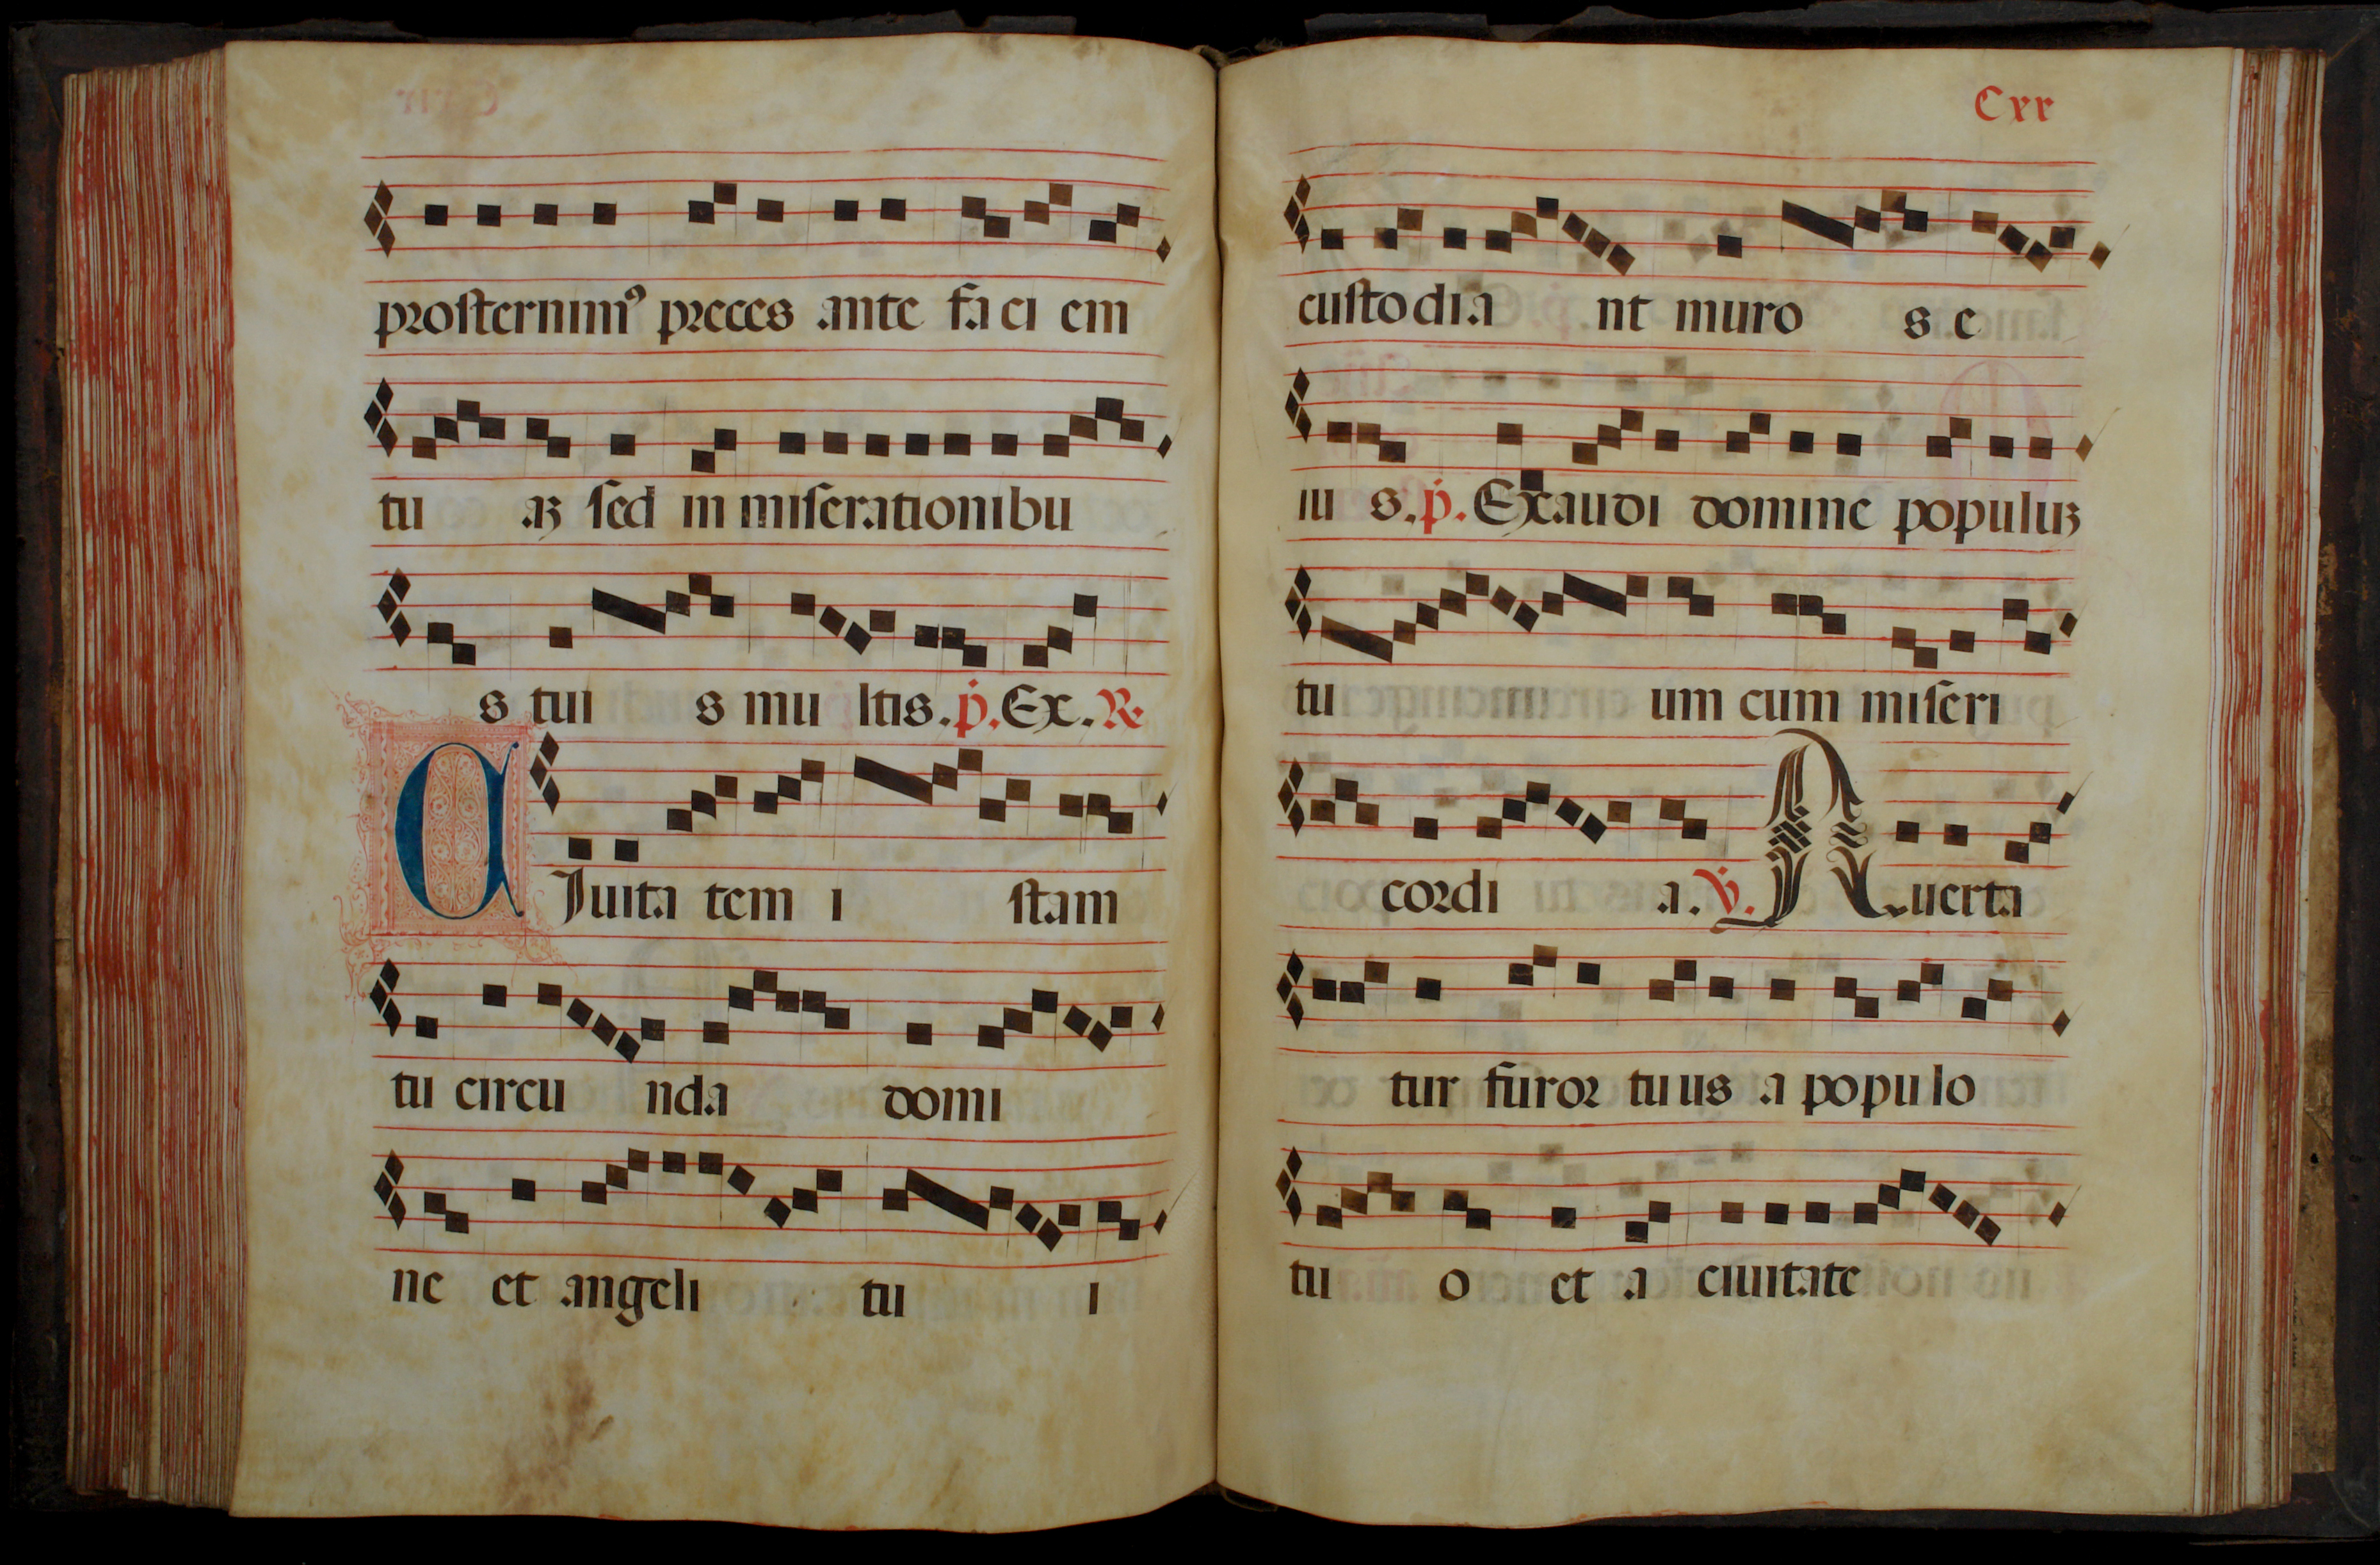 proſternim⁹ preces ante faciem
tu aʒ ſed in miſerationibu
s tui s mu ltis. p̄. Ex. ℟
CJuita tem i ſtam
tu circu nda domi
ne et angeli tu i
Cxx
cuſtodia nt muro s e
iu s. p̄. Exaudi domine populuʒ
tu um cum miſeri
cordi a. ℣. Auerta
tur furor tuus a populo
tu o et a ciuitate